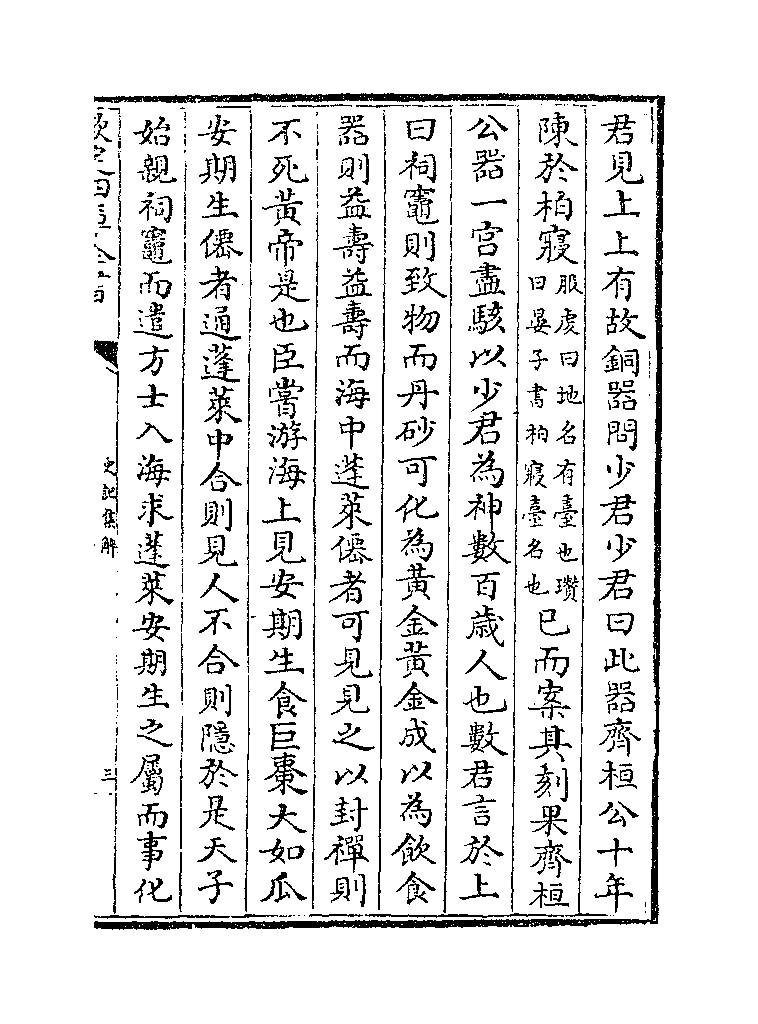 君見上上有故銅器問少君少君曰此器齊桓公十年
陳於栢寢服虔曰地名有臺也瓚曰晏子書栢寢臺名也已而案其刻果齊桓
公器一宫盡駭以少君為神數百歳人也數君言於上
曰祠竈則致物而丹砂可化為黃金黃金成以為飲食
器則益壽益壽而海中蓬萊僊者可見見之以封禪則
不死黃帝是也臣嘗游海上見安期生食巨棗大如瓜
安期生僊者通蓬萊中合則見人不合則隱於是天子
始親祠竈而遣方士入海求蓬萊安期生之屬而事化
欽定四庫全書
史記集解